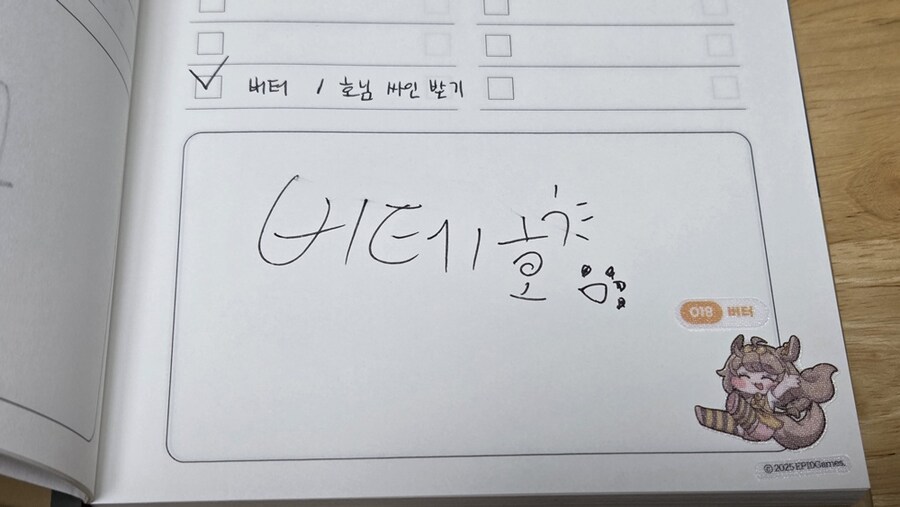 버터 / 호님 싸인 받기
버터 / 호
018 버터
© 2025 EPIDGames.